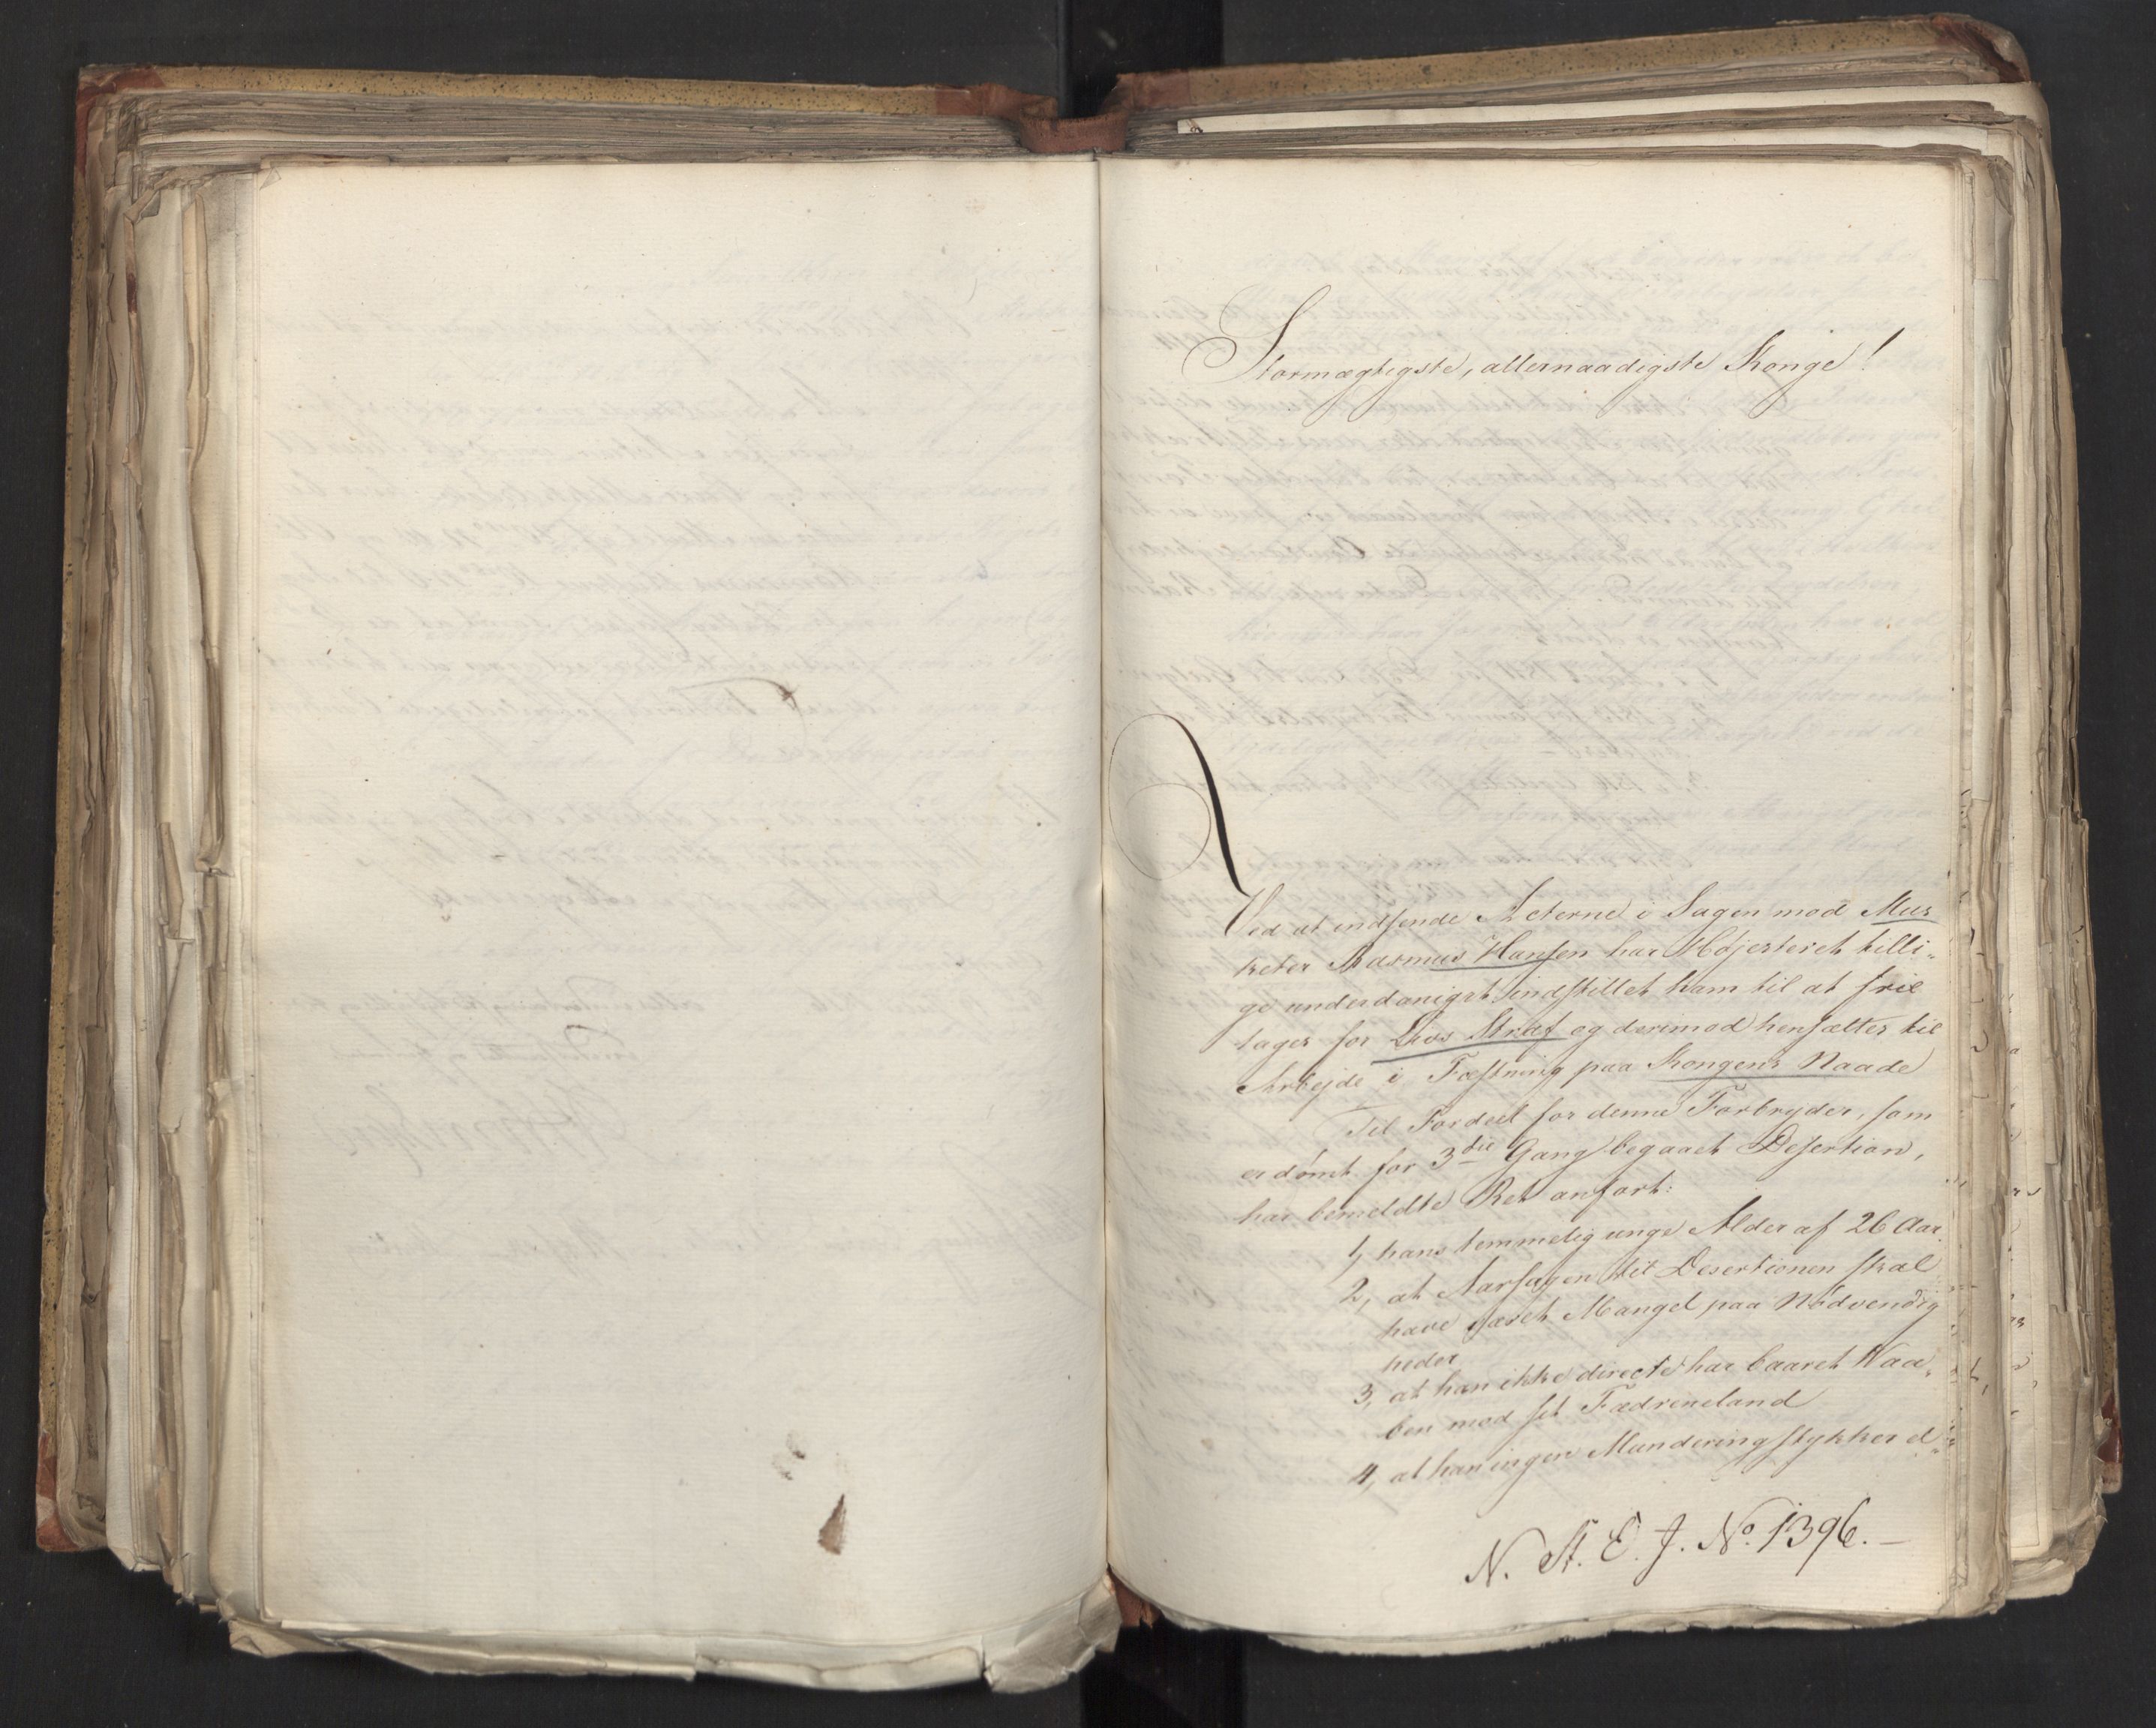 Stormægtigste, allernaadigste Konge!
Ved at indsende Acterne i Sagen mod Mus
keter Rasmus Hansen har Højesteret tilli„
ge underdanigst indstillet ham til at frie
tages for Livs Straf og derimod hensættes til
Arbejde i Fæstning paa Kongens Naade
Til Fordeel for denne Forbryder, som
er dømt for 3die Gang begaaet Desertion,
har bemeldte Ret anført:
1, hans temmelig unge Alder af 26 Aar.
2, at Aarsagen til Desertionen skal
have været Mangel paa Nødvendig
heder
3, at han ikke directe har baaret Vaa„
ben mod sit Fædreneland
4, at han ingen Munderingsstykker d„
N. St. E. J. No. 1396.—